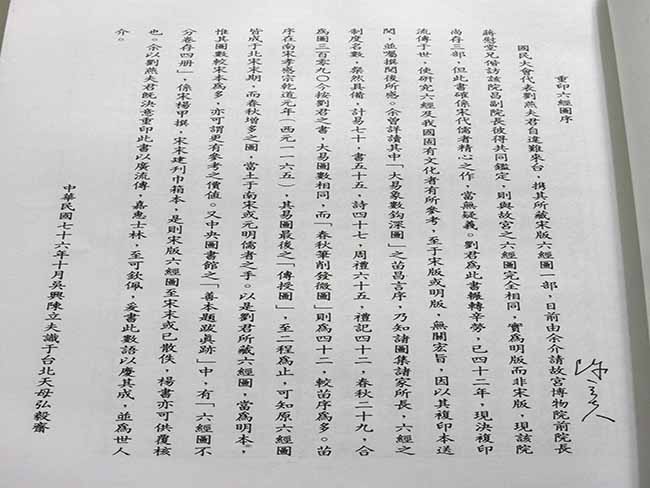 重印六經圖序
國民大會代表劉燕夫君自違難來台，携其所藏宋版六經圖一部，日前由余介請故宮博物院前院長
蔣慰堂兄偕訪該院昌副院長彼得共同鑑定，則與故宮之六經圖完全相同，實爲明版而非宋版，現該院
尚存三部，但此書確係宋代儒者精心之作，當無疑義。劉君爲此書輾轉辛勞，已四十二年，現決複印
流傳于世，使研究六經及我國固有文化者有所參考，至于宋版或明版，無關宏旨，因以其複印本送
閱，並囑撰閱後所感。余曾詳讀其中「大易象數鈎深圖」之苗昌言序，乃知諸圖集諸家所長，六經之
制度名數，粲然具備，計易七十，書五十五，詩四十七，周禮六十五，禮記四十二，春秋二十九，合
爲圖三百零九〇今按劉君之書，大易圖數相同，而「春秋筆削發微圖」則爲四十二，較苗序爲多。苗
序在南宋孝宗乾道元年（西元一一六五），其易圖最後之「傳授圖」，至二程爲止，可知原六經圖
皆成于北宋末期，而春秋增多之圖，當土于南宋或元明儒者之手。以是劉君所藏六經圖，當爲明本，
惟其圖數較宋本爲多，亦可謂更有參考之價值。又中央圖書館之「善本題跋眞跡」中，有「六經圖不
分卷存四册」，係宋楊甲撰，宋末建刋巾箱本，是則宋版六經圖至宋末或已散佚，楊書亦可供覆核
也。余以劉燕夫君既決意重印此書以廣流傳，嘉惠士林，至可欽佩，爰書此數語以慶其成，並爲世人
介。
中華民國七十六年十月吳興陳立夫識于台北天母弘毅齋
陳立夫